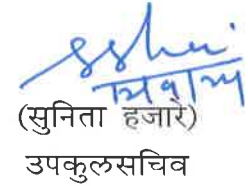 (सुनिता हजारे)
उपकुलसचिव